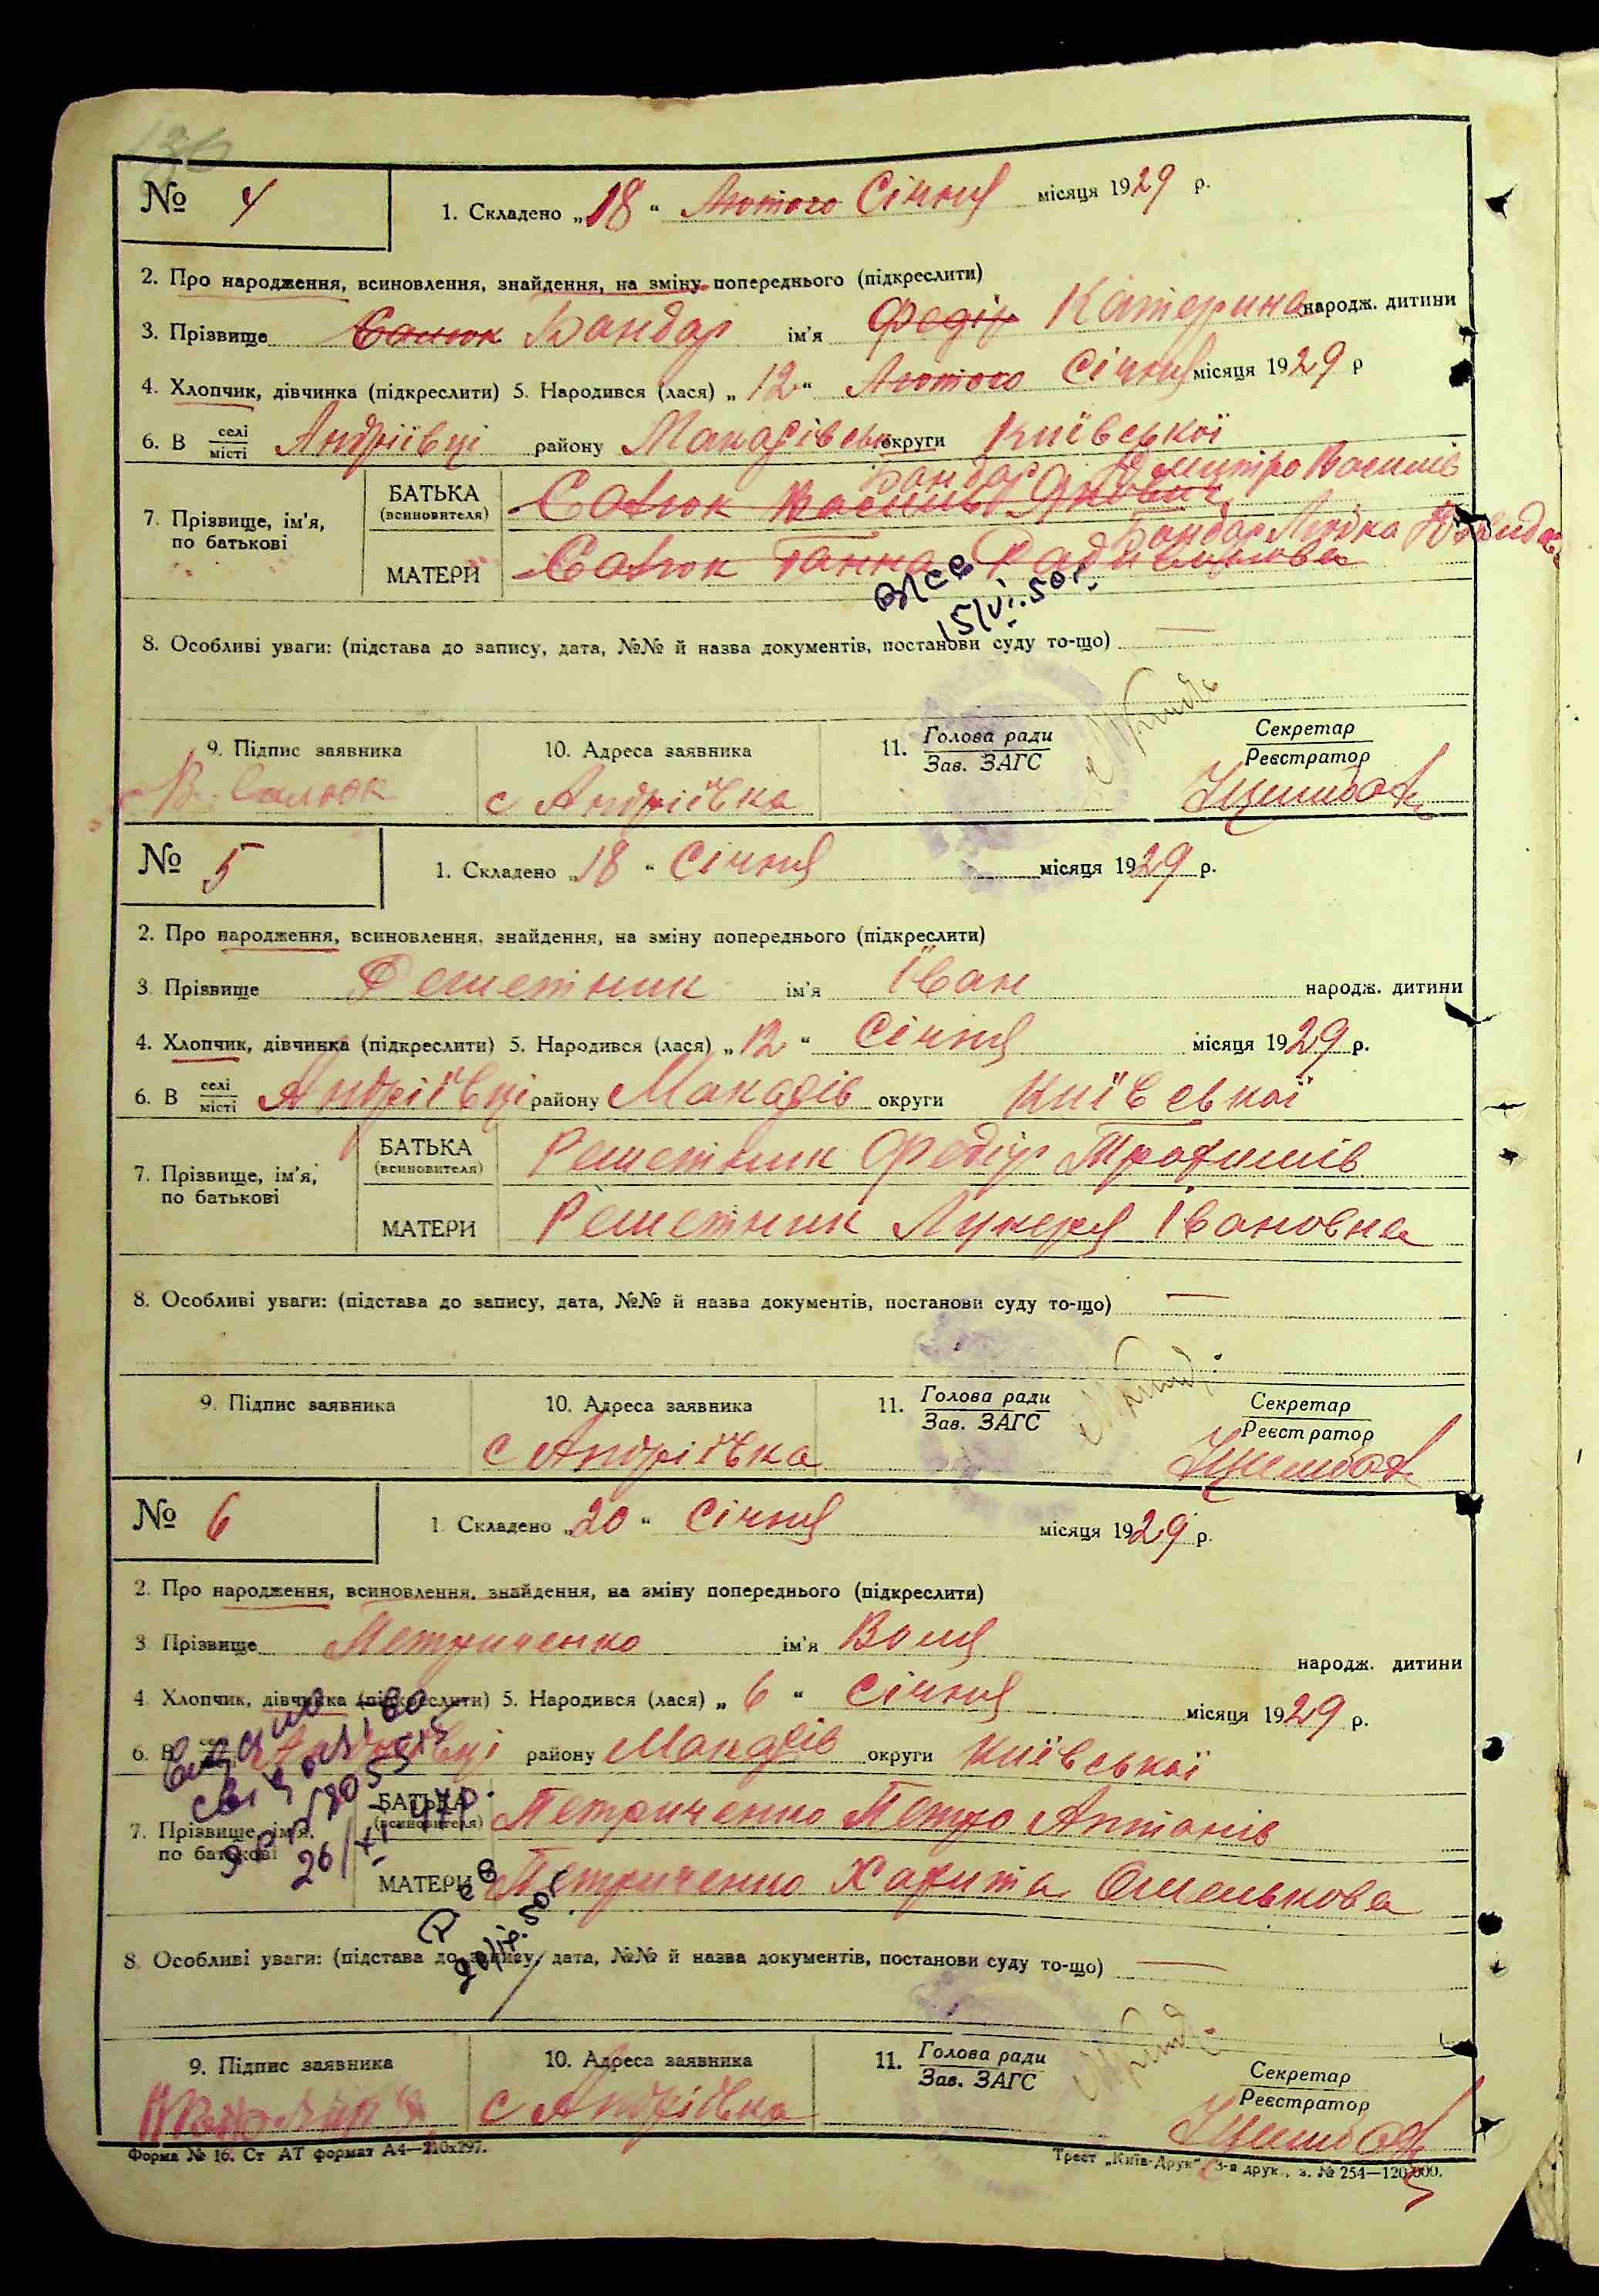 136
№ 4
1. Складено „18“ Лютого Січня місяця 1929 р.
2. Про народження, всиновлення, знайдення, на зміну попереднього (підкреслити)
3. Прізвище Бондар ім'я Федір Катерина народж. дитини
4. Хлопчик, дівчинка (підкреслити) 5. Народився (лася) „12“ Лютого Січня місяця 1929 р
6. В селі місті Андріївці району Макарівськ округи Київської
Бондар Дмитро Василів
7. Прізвище, ім'я, по батькові БАТЬКА (всиновителя) Василь
Бондар
МАТЕРИ Ганна
15/VI.50 г.
8. Особливі уваги: (підстава до запису, дата, №№ й назва документів, постанови суду то-що) —
9. Підпис заявника 10. Адреса заявника 11. Голова ради Зав. ЗАГС Секретар Реєстратор
с Андріївка
№ 5
1. Складено „18“ Січня місяця 1929 р.
2. Про народження, всиновлення, знайдення, на зміну попереднього (підкреслити)
3 Прізвище Решетник ім'я Іван народж. дитини
4. Хлопчик, дівчинка (підкреслити) 5. Народився (лася) „12“ Січня місяця 1929 р.
6. В селі місті Андріївці району Макарів округи Київської
7. Прізвище, ім'я, по батькові БАТЬКА (всиновителя) Решетник Федір Трофимів
МАТЕРИ Решетник Лукеря Івановна
8. Особливі уваги: (підстава до запису, дата, №№ й назва документів, постанови суду то-що) —
9. Підпис заявника 10. Адреса заявника 11. Голова ради Зав. ЗАГС Секретар Реєстратор
с Андріївка
№ 6
1 Складено „20“ Січня місяця 1929 р.
2. Про народження, всиновлення, знайдення, на зміну попереднього (підкреслити)
3 Прізвище Петриченко ім'я народж. дитини
4 Хлопчик, дівчинка (підкреслити) 5. Народився (лася) „6“ Січня місяця 1929 р.
6. В Андріївці району Макарів округи Київської
7. Прізвище, ім'я, по батькові БАТЬКА (всиновителя) Петриченко Петро Антонів
26/XI 47 р.
МАТЕРИ Петриченко Харита Омелькова
8 Особливі уваги: (підстава до запису, дата, №№ й назва документів, постанови суду то-що) —
9. Підпис заявника 10. Адреса заявника 11. Голова ради Зав. ЗАГС Секретар Реєстратор
с Андріївка
Форма № 16. Ст АТ формат А4—210x297.
Трест „Київ-Друк“ 3-я друк., з. № 254—120,000.